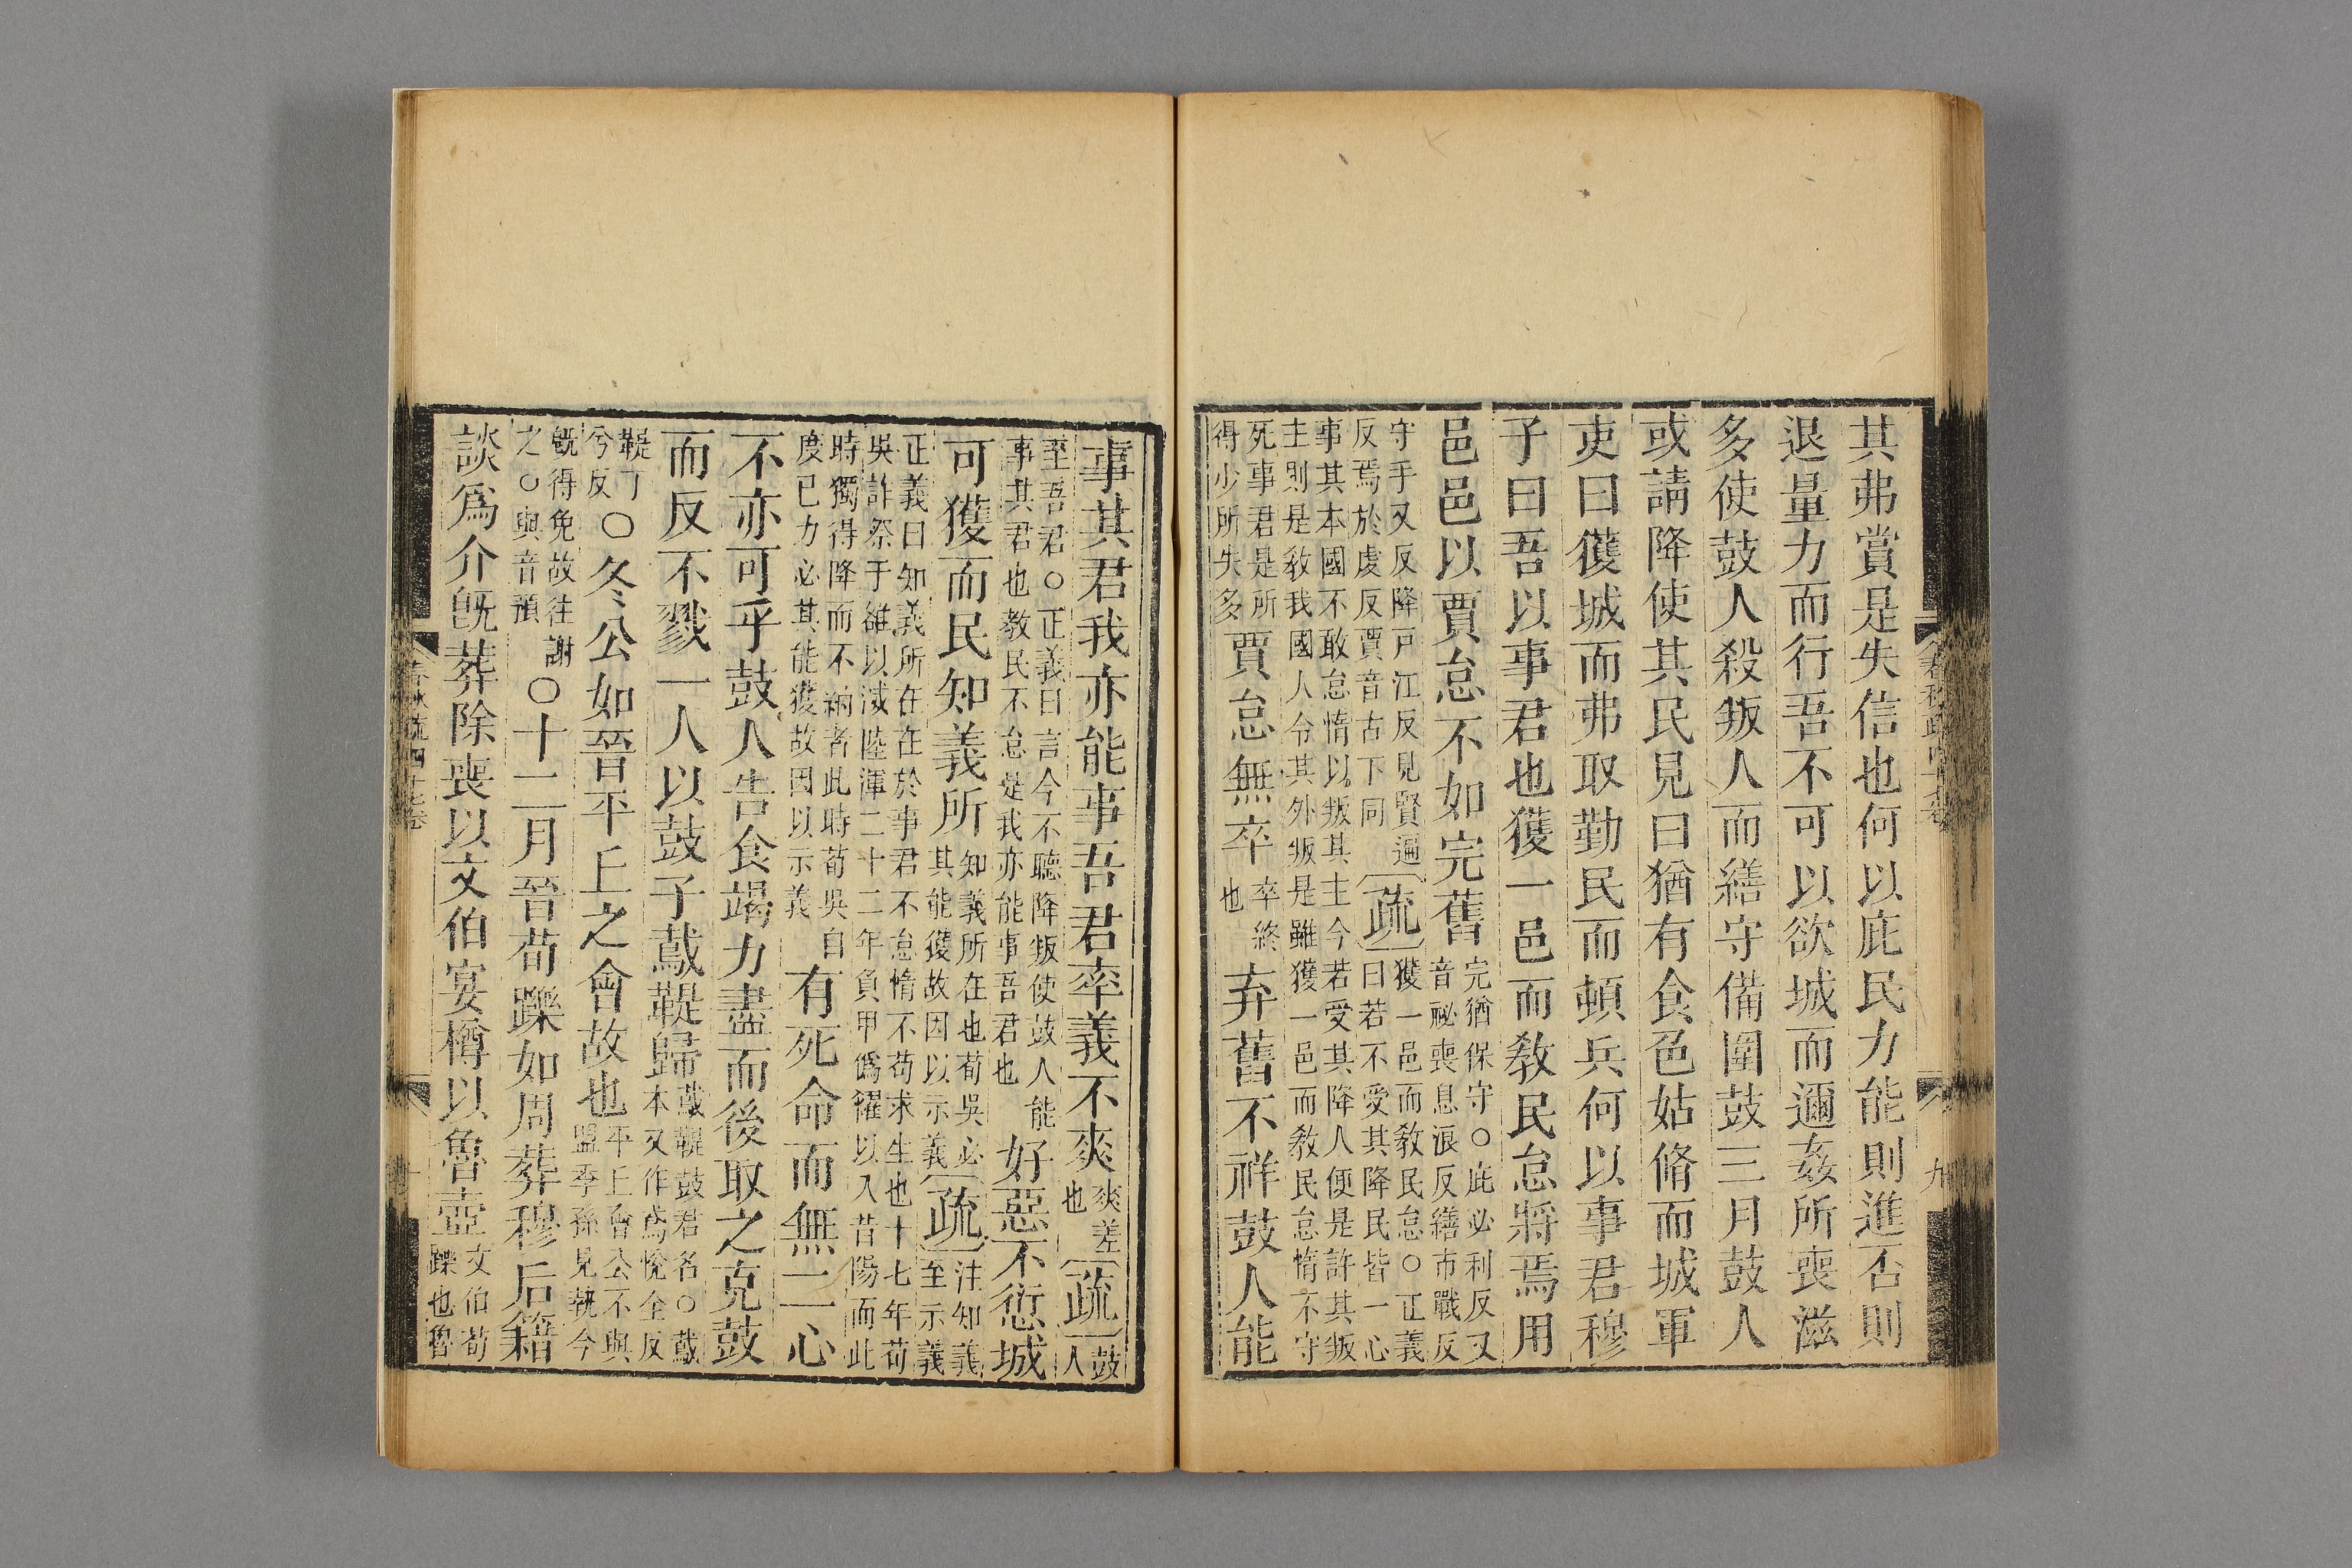 其弗賞是失信也何以庇民力能則進否則
退量力而行吾不可以欲城而邇姦所喪滋
多使鼓人殺叛人而繕守備圍鼓三月鼓人
或請降使其民見曰猶有食色姑脩而城軍
吏曰獲城而弗取勤民而頓兵何以事君穆
子曰吾以事君也獲一邑而敎民怠將焉用
邑邑以賈怠不如完舊完猶保守○庇必利反又音祕喪息浪反繕市戰反
守手又反降戸江反見賢遍反焉於虔反賈音古下同疏獲一邑而敎民怠○正義曰若不受其降民皆一心
事其本國不敢怠惰以叛其主今若受其降人便是許其叛主則是敎我國人令其外叛是雖獲一邑而敎民怠惰不守
死事君是所得少所失多賈怠無卒卒終也弃舊不祥鼓人能
事其君我亦能事吾君率義不爽爽差也疏鼓人
至吾君○正義曰言今不聽降叛使鼓人能事其君也教民不怠是我亦能事吾君也好惡不愆城
可獲而民知義所知義所在也荀吳必其能獲故因以示義疏注知義至示義
正義曰知義所在在於事君不怠惰不苟求生也十七年荀吳詐祭于雒以滅陸渾二十二年負甲僞糴以入昔陽而此
時獨得降而不納者此時荀吳自度已力必其能獲故因以示義有死命而無二心
不亦可乎鼓人告食竭力盡而後取之克鼓
而反不戮一人以鼓子䳒鞮歸䳒鞮鼓君名○䳒本又作鳶悅全反
鞮丁兮反○冬公如晉平丘之會故也平丘會公不與盟季孫見執今
旣得免故往謝之○與音預○十二月晉荀躒如周葬穆后籍
談爲介旣葬除喪以文伯宴樽以魯壺文伯荀躒也魯
九